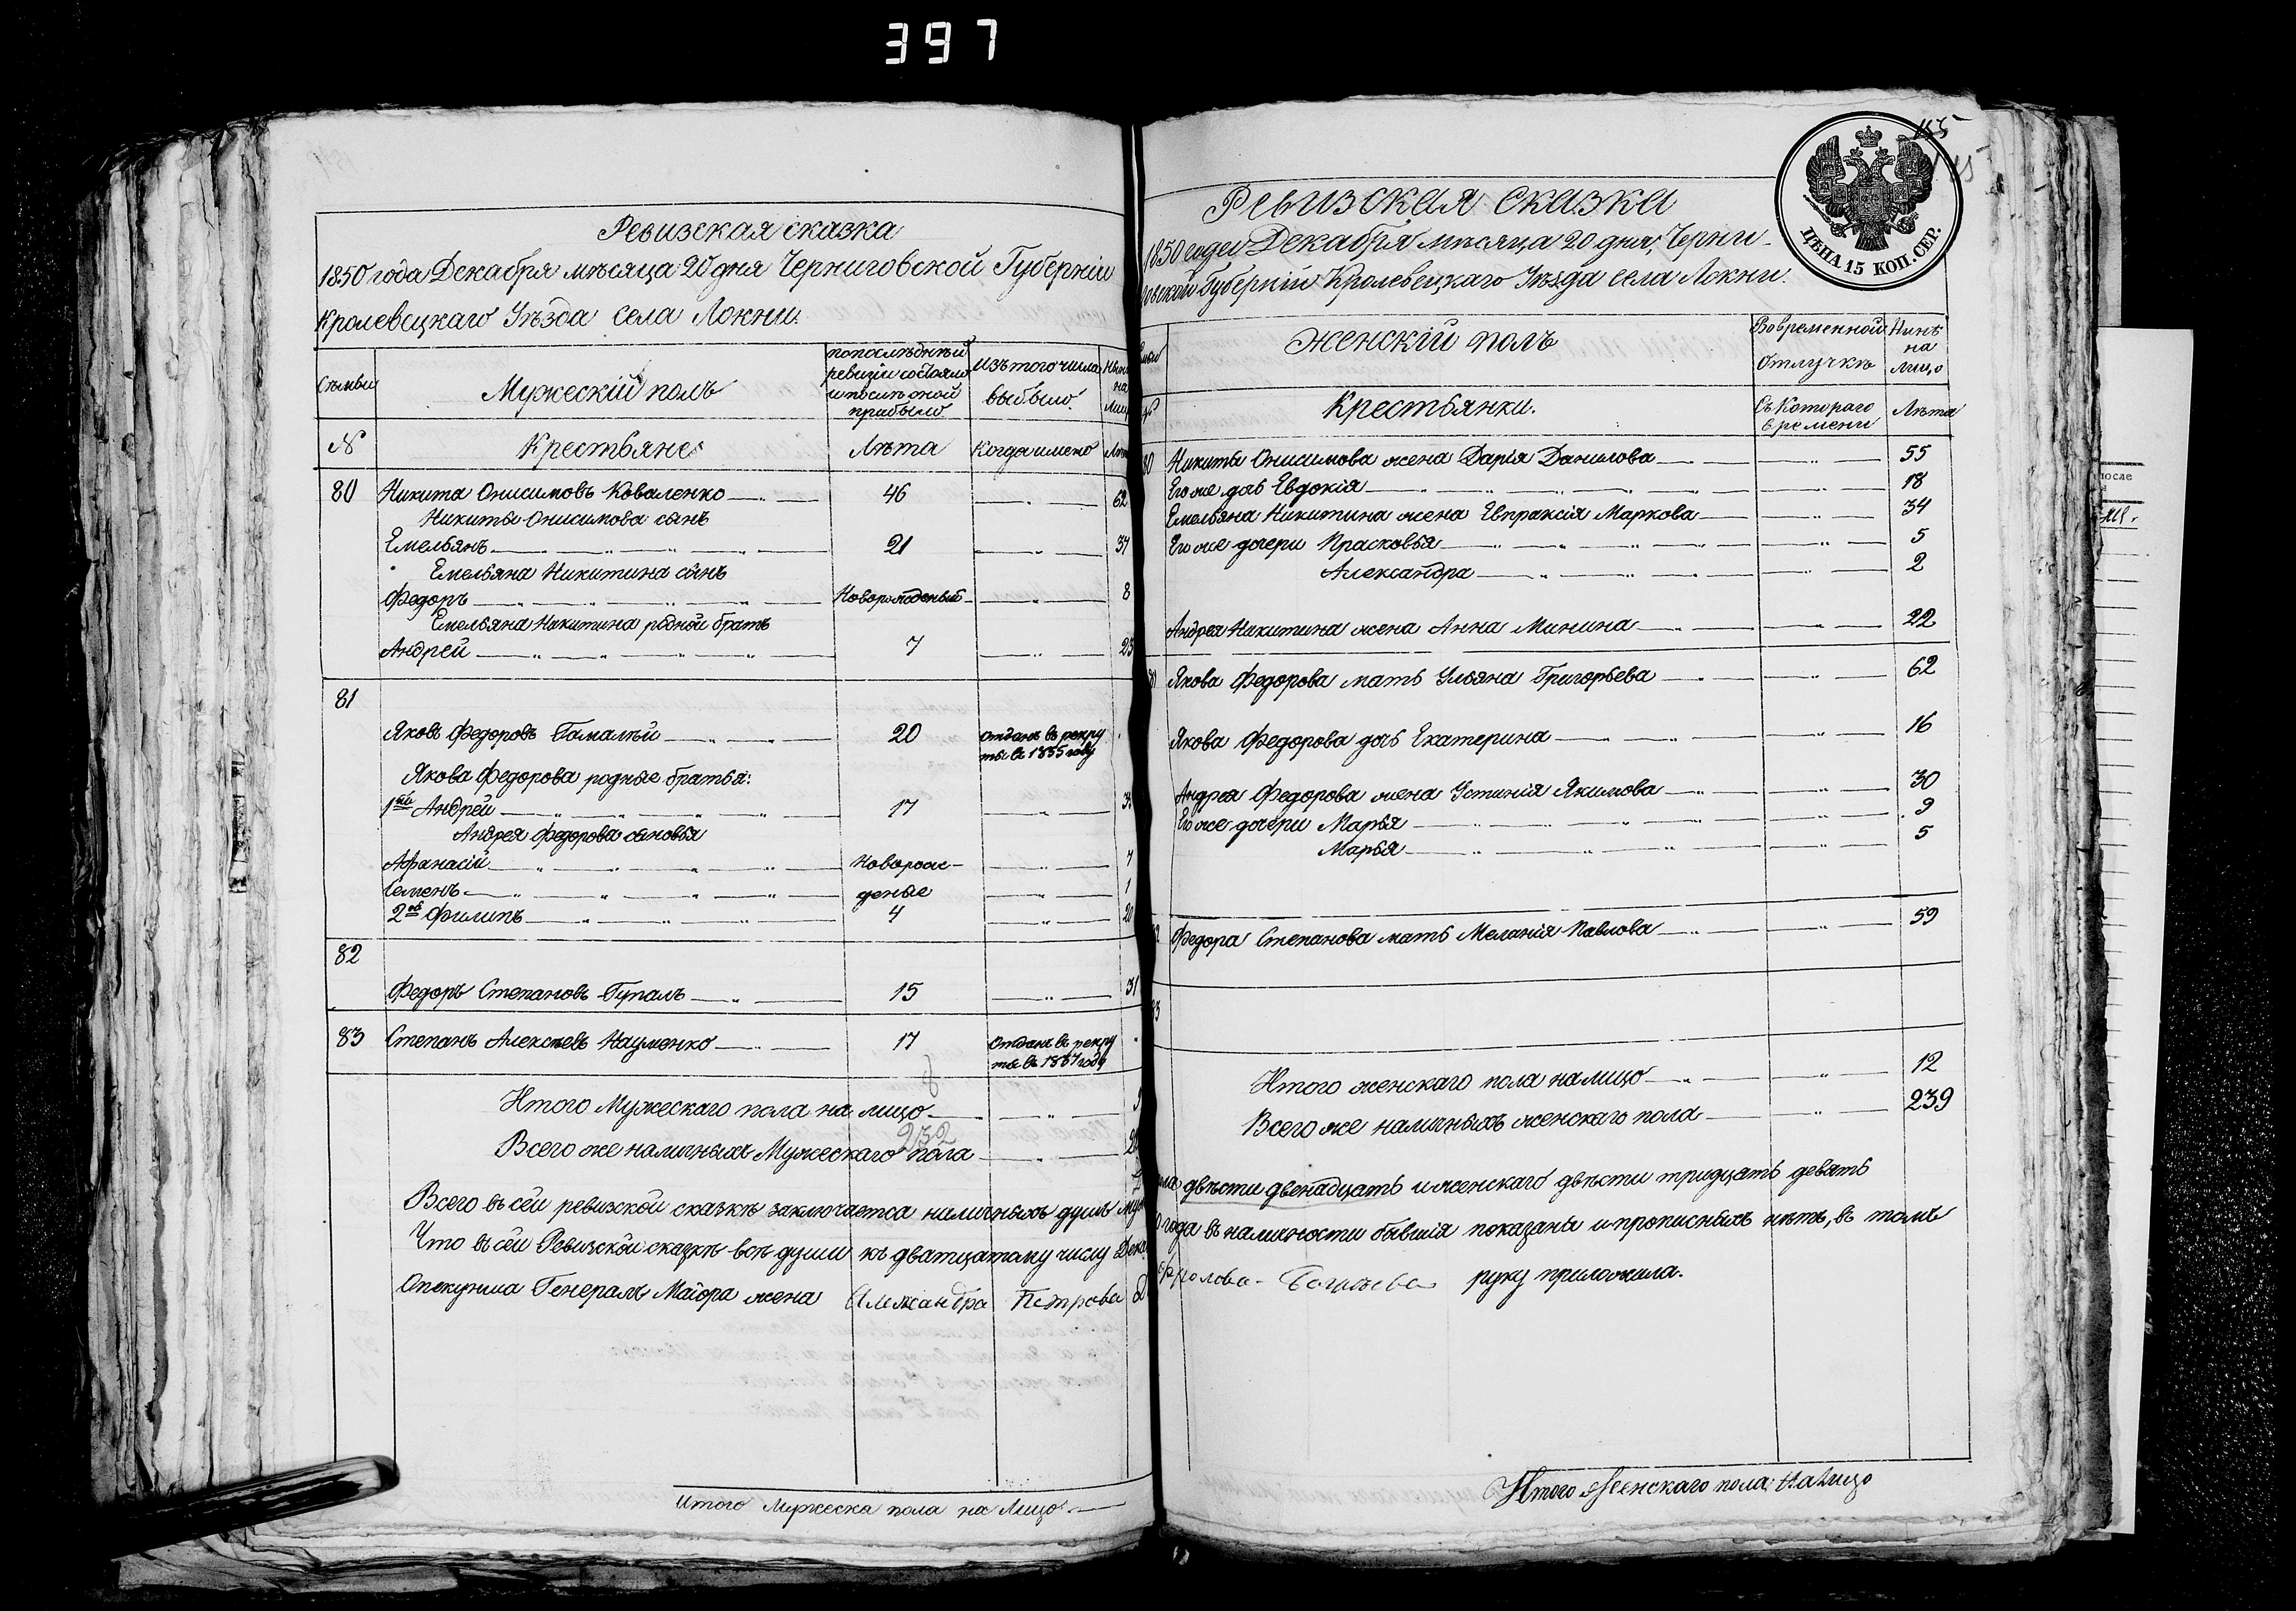 397
Ревизская сказка
1850 года Декабря мѣсяца 20 дня Черниговской Губерніи
Кролевецкаго Уѣзда села Локни.
Мужескій полъ
По послѣдней
ревизіи состояло
и после оной
прибыло
Изъ того числа
выбыло.
на
№
Крестьяне
Лѣта
Когда имено
80 Никита Онисимовъ Коваленко 46 62
Никиты Онисимова сынъ
Емельянъ 21 37
Емельяна Никитина сынъ
Федоръ Новорожденый 8
Емельяна Никитина родной братъ
Андрей 7 23
81
Яковъ Федоровъ Гамалѣй 20 отданъ въ рекру
ты въ 1835 году
Якова Федорова родные братья:
1ый Андрей 17
Андрея Федорова сыновья
Афанасій Новорож- 7
Семенъ деные 1
2ой Филипъ 4 20
82
Федоръ Степановъ Гупалъ 15 31
83 Степанъ Алексѣевъ Науменко 17 Отданъ въ рекру
ты въ
Итого Мужескаго пола на лицо
232
Всего же наличныхъ Мужескаго пола
Всего въ сей ревизской сказкѣ заключается наличныхъ душъ
Что въ сей Ревизской сказкѣ всѣ души къ дватцатому числу
Опекунша Генералъ Маіора жена Александра Петрова
Итого Мужеска пола на Лицо
155
ЦѢНА 15 КОП. СЕР.
Ревизская сказка
1850 года Декабря мѣсяца 20 дня, Черни-
говской Губерніи Кролевецкаго Уѣзда села Локни.
Женскій полъ
Во временной
отлучкѣ
Нынѣ
на
лицо
Крестьянки.
Съ Котораго
времени
Лѣта
80 Никиты Онисимова жена Дарія Данилова 55
Его же дочь Евдокія 18
Емельяна Никитина жена Евпраксія Маркова 34
Его же дочери Прасковья 5
Александра 2
Андрея Никитина жена Анна Минина 22
Якова Федорова мать Ульяна Григорьева 62
Якова Федорова дочь Екатерина 16
Андрея Федорова жена Устинія Якимова 30
Его же дочери Марья 9
Марья 5
Федора Степанова мать Меланія Павлова 59
Итого женскаго пола на лицо 12
Всего же наличныхъ женскаго пола 239
двѣсти двенадцать и женскаго двѣсти тридцать девять
года въ наличности бывшія показаны и прописныхъ нѣтъ, въ томъ
руку приложила.
Итого Женскаго пола: На Лицо